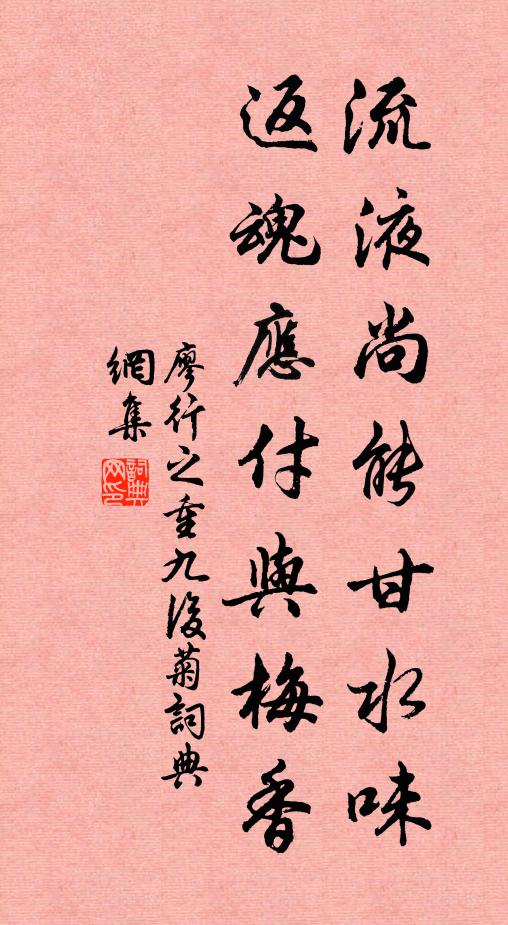 流液尚能甘水味
返魂應付與梅香
廖行之重九後菊詞典
網集
詞典網印